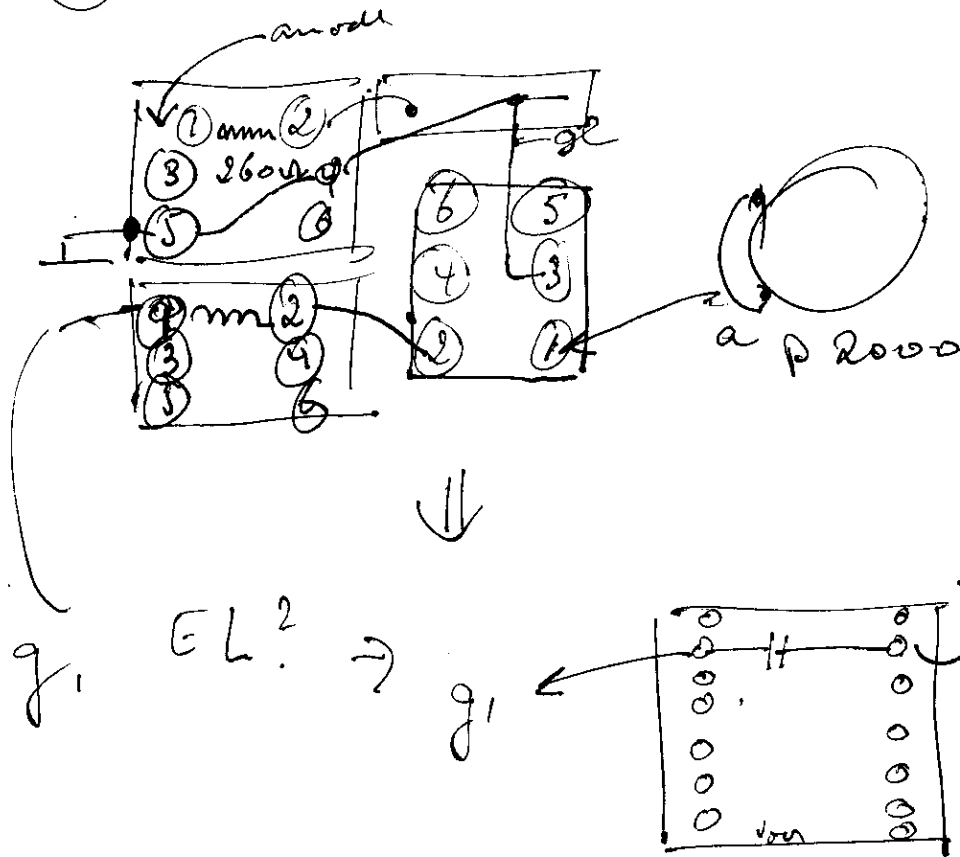 anode
1 2
3 260Ω 4
5 6
g2
6 5
4 3
2 1
1 2
3 4
5 6
a P 2000
g1 EL? → g1
voor